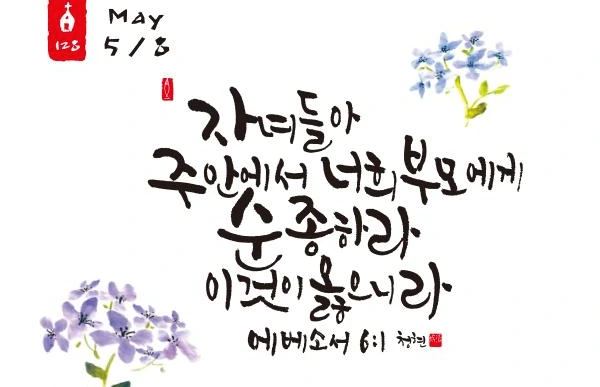 128
May
5/8
자녀들아
주 안에서 너희 부모에게
순종하라
이것이 옳으니라
에베소서 6:1 청현